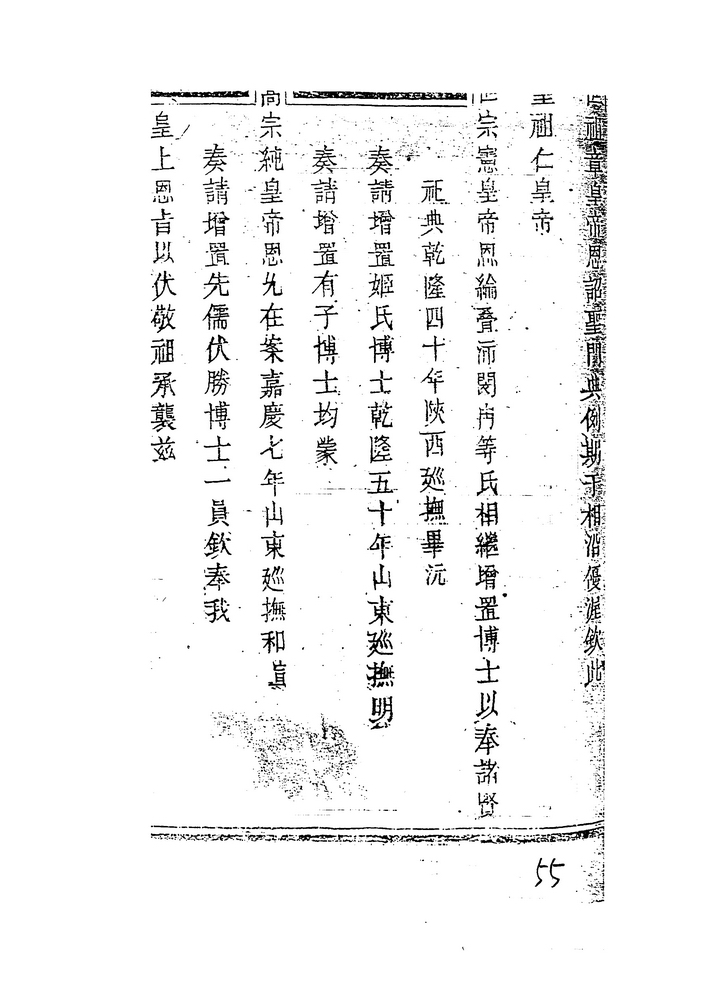 祖章皇帝恩詔聖門典例期于相沿優渥欽此
聖祖仁皇帝
世宗憲皇帝恩綸疊沛閔冉等氏相繼增置博士以奉諸賢
祀典乾隆四十年陝西廵撫畢沅
奏請增置姬氏博士乾隆五十年山東廵撫明
奏請增置有子博士均蒙
高宗純皇帝恩允在案嘉慶七年山東廵撫和
奏請增置先儒伏勝博士一員欽奉我
皇上恩旨以伏敬祖承襲茲
55